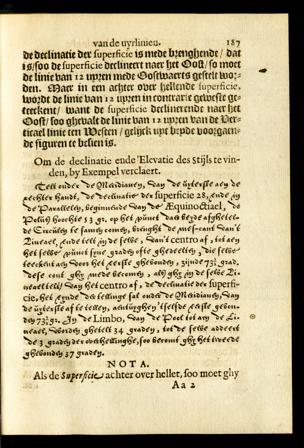 van de uyrlinieu. 187
de declinatie der superficie is mede brenghende / dat
is / soo de superficie declineert naer het Oost / so moet
de linie van 12 uyren mede Oostwaerts gestelt wor-
den. Maer in een achter over hellende superficie,
wordt de linie van 12 uyren in contrarie geweste ge-
teeckent / want de superficie declinerende naer het
Oost / soo ghevalt de linie van 12 uyren van de Ver-
ticael linie ten Westen / gelijck upt beyde voorgaen-
de figuren te besien is.
Om de declinatie ende Elevatie des Stijls te vin-
den, by Exempel verclaert.
Telt onder de Meridianen, van de uyterste aen de
rechter handt, de declinatie der superficie 28, ende in
de Parallelen, beginnende van de Æquinoctiael, de
Polus hoochte 53 gr. op het punct daer beyde
de Circulen te samen comen, brenght de
Linieael, ende telt in de selve, van't centro af, tot aen
het selve punct
73¾ gra-
den,
centro af, de declinatie der superfi-
cie, het eynde der tellinge sal onder de Meridianen, van
de uyterste af te tellen,
den 73¾ gr. In de Limbo, van de Pool tot aen de Li-
neael, worden ghetelt 34 graden, tot de selve addeert
de 3 graden der overhellinghe, soo becomt ghy het tweede
ghevonden 37 graden.
NOTA.
Als de Superficie achter over hellet, soo moet ghy
Aa 2